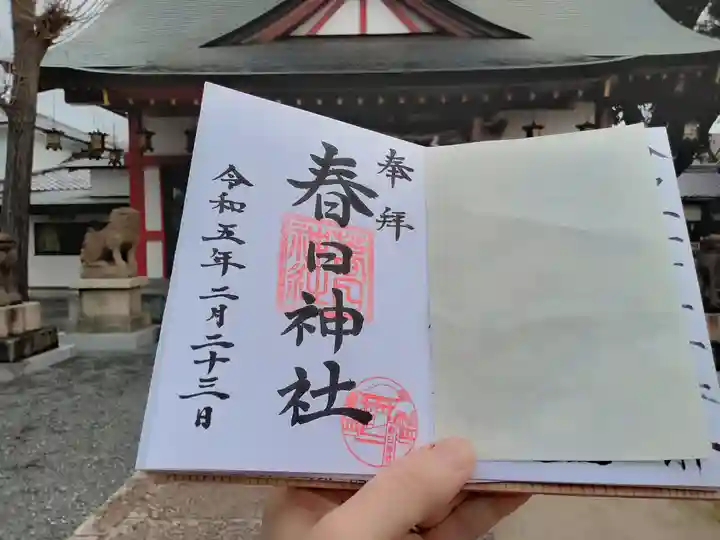 奉拝
春日神社
令和五年二月二十三日